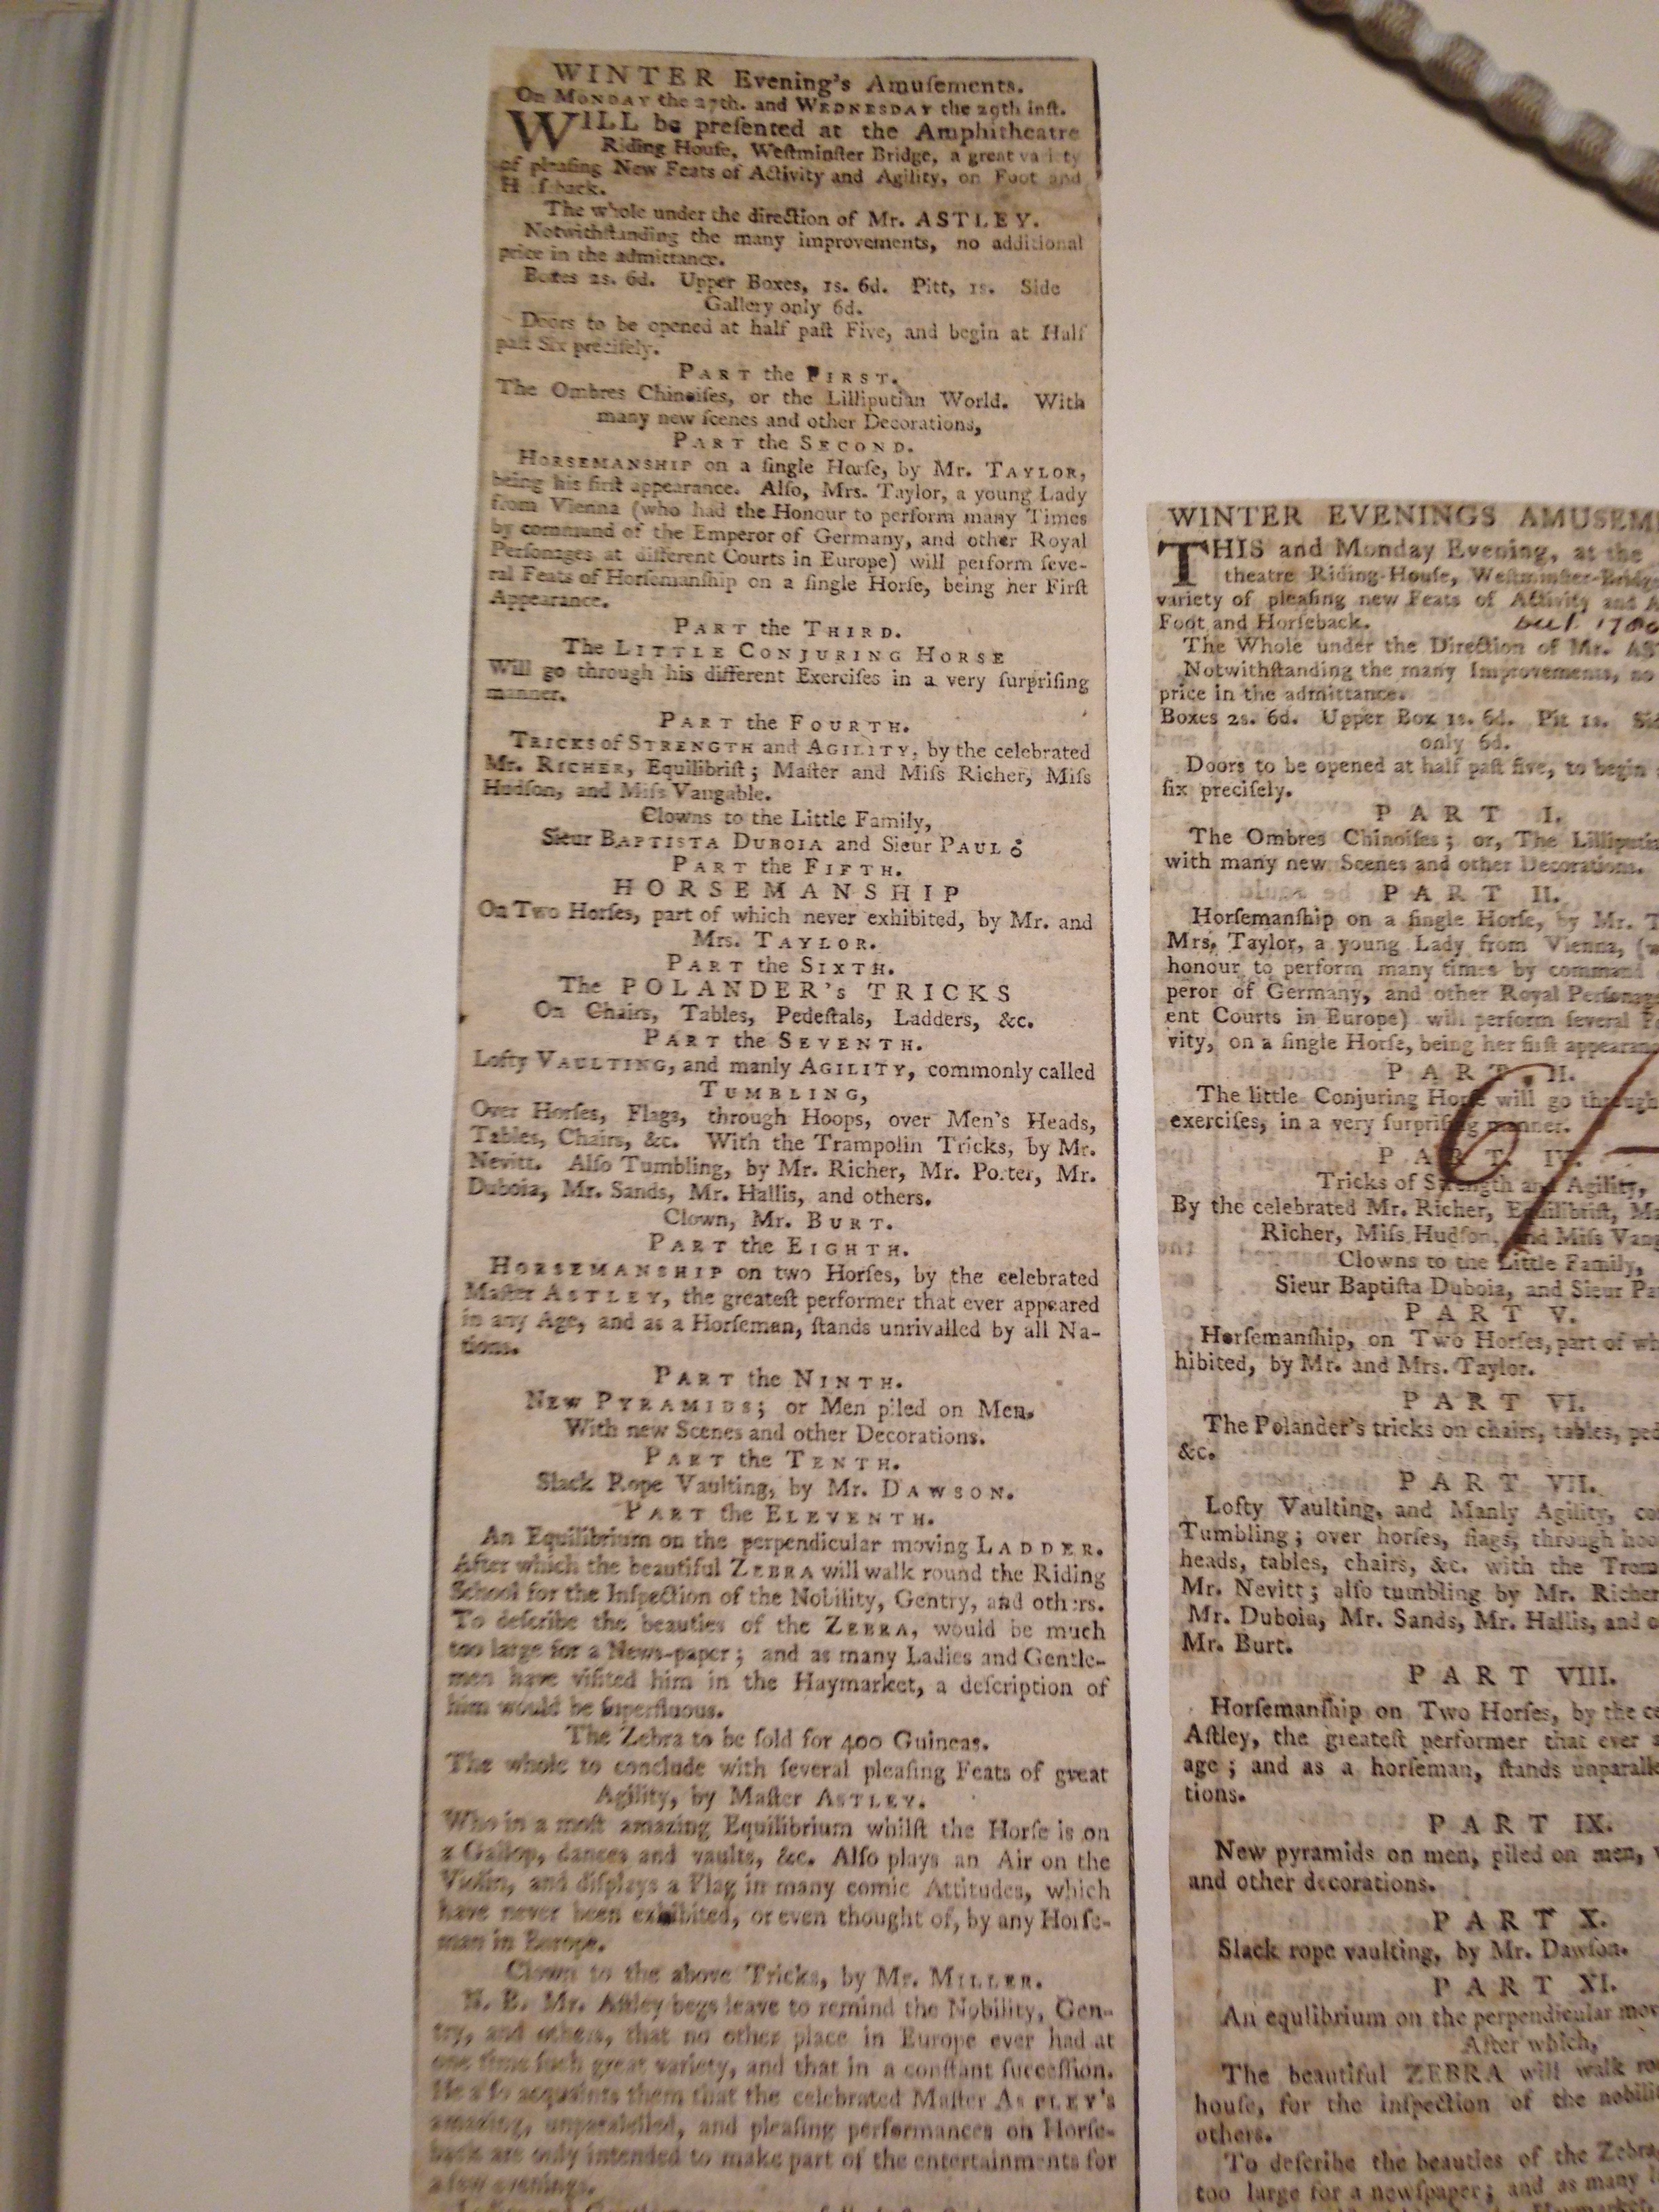 WINTER Evening's Amuſements.
On MONDAY the 27th. and WEDNESDAY the 29th inſt.
WILL be preſented at the Amphitheatre
Riding Houſe, Weſtminſter Bridge, a great variety
of pleaſing New Feats of Activity and Agility, on Foot and
H ſeback.
The whole under the direction of Mr. ASTLEY.
Notwithſtanding the many improvements, no additional
price in the admittance.
Boxes 2s. 6d. Upper Boxes, 1s. 6d. Pitt, 1s. Side
Gallery only 6d.
Doors to be opened at half paſt Five, and begin at Half
paſt Six preciſely.
PART the FIRST.
The Ombres Chinoiſes, or the Lilliputian World. With
many new ſcenes and other Decorations,
PART the SECOND.
HORSEMANSHIP on a ſingle Horſe, by Mr. TAYLOR,
being his firſt appearance. Alſo, Mrs. Taylor, a young Lady
from Vienna (who had the Honour to perform many Times
by command of the Emperor of Germany, and other Royal
Perſonages at different Courts in Europe) will perform ſeve-
ral Feats of Horſemanſhip on a ſingle Horſe, being her Firſt
Appearance.
PART the THIRD.
The LITTLE CONJURING HORSE
Will go through his different Exerciſes in a very ſurpriſing
manner.
PART the FOURTH.
TRICKS of STRENGTH and AGILITY, by the celebrated
Mr. RICHER, Equilibriſt; Maſter and Miſs Richer, Miſs
Hudſon, and Miſs Vangable.
Clowns to the Little Family,
Sieur BAPTISTA DUBOIA and Sieur PAULO
PART the FIFTH.
HORSEMANSHIP
On Two Horſes, part of which never exhibited, by Mr. and
Mrs. TAYLOR.
PART the SIXTH.
The POLANDER's TRICKS
On Chairs, Tables, Pedeſtals, Ladders, &c.
PART the SEVENTH.
Lofty VAULTING, and manly AGILITY, commonly called
TUMBLING,
Over Horſes, Flags, through Hoops, over Men's Heads,
Tables, Chairs, &c. With the Trampolin Tricks, by Mr.
Nevitt. Alſo Tumbling, by Mr. Richer, Mr. Porter, Mr.
Duboia, Mr. Sands, Mr. Hallis, and others.
Clown, Mr. BURT.
PART the EIGHTH.
HORSEMANSHIP on two Horſes, by the celebrated
Maſter ASTLEY, the greateſt performer that ever appeared
in any Age, and as a Horſeman, ſtands unrivalled by all Na-
tions.
PART the NINTH.
NEW PYRAMIDS; or Men piled on Men.
With new Scenes and other Decorations.
PART the TENTH.
Slack Rope Vaulting, by Mr. DAWSON.
PART the ELEVENTH.
An Equilibrium on the perpendicular moving LADDER.
After which the beautiful ZEBRA will walk round the Riding
School for the Inſpection of the Nobility, Gentry, and others.
To deſcribe the beauties of the ZEBRA, would be much
too large for a News-paper; and as many Ladies and Gentle-
men have viſited him in the Haymarket, a deſcription of
him would be ſuperfluous.
The Zebra to be ſold for 400 Guineas.
The whole to conclude with ſeveral pleaſing Feats of great
Agility, by Maſter ASTLEY.
Who in a moſt amazing Equilibrium whilſt the Horſe is on
a Gallop, dances and vaults, &c. Alſo plays an Air on the
Violin, and diſplays a Flag in many comic Attitudes, which
have never been exhibited, or even thought of, by any Horſe-
man in Europe.
Clown to the above Tricks, by Mr. MILLER.
N. B. Mr. Aſtley begs leave to remind the Nobility, Gen-
try, and others, that no other place in Europe ever had at
one time ſuch great variety, and that in a conſtant ſucceſſion.
He alſo acquaints them that the celebrated Maſter ASTLEY's
amazing, unparalelled, and pleaſing performances on Horſe-
back are only intended to make part of the entertainments for
a few evenings.
WINTER EVENINGS AMUSEM
THIS and Monday Evening, at the
theatre Riding-Houſe, Weſtminſter-Bridge
variety of pleaſing new Feats of Activity and A
Foot and Horſeback.
The Whole under the Direction of Mr. AST
Notwithſtanding the many Improvements, no
price in the admittance.
Boxes 2s. 6d. Upper Box 1s. 6d. Pit 1s. Sid
only 6d.
Doors to be opened at half paſt five, to begin
ſix preciſely.
PART I.
The Ombres Chinoiſes; or, The Lilliputia
with many new Scenes and other Decorations.
PART II.
Horſemanſhip on a ſingle Horſe, by Mr. T
Mrs. Taylor, a young Lady from Vienna, (w
honour to perform many times by command
peror of Germany, and other Royal Perſonag
ent Courts in Europe) will perform ſeveral Fe
vity, on a ſingle Horſe, being her firſt appearan
PART II.
The little Conjuring Horſe will go through
exerciſes, in a very ſurpriſing manner.
PART IV.
Tricks of Strength and Agility,
By the celebrated Mr. Richer, Equilibriſt, Ma
Richer, Miſs Hudſon, and Miſs Vang
Clowns to the Little Family,
Sieur Baptiſta Duboia, and Sieur Pa
PART V.
Horſemanſhip, on Two Horſes, part of wh
hibited, by Mr. and Mrs. Taylor.
PART VI.
The Polander's tricks on chairs, tables, ped
&c.
PART VII.
Lofty Vaulting, and Manly Agility, co
Tumbling; over horſes, flags, through hoo
heads, tables, chairs, &c. with the Tram
Mr. Nevitt; alſo tumbling by Mr. Richer
Mr. Duboia, Mr. Sands, Mr. Hallis, and o
Mr. Burt.
PART VIII.
Horſemanſhip on Two Horſes, by the ce
Aſtley, the greateſt performer that ever a
age; and as a horſeman, ſtands unparalle
tions.
PART IX.
New pyramids on men, piled on men, w
and other decorations.
PART X.
Slack rope vaulting, by Mr. Dawſon.
PART XI.
An equlibrium on the perpendicular mov
After which,
The beautiful ZEBRA will walk ro
houſe, for the inſpection of the nobilit
others.
To deſcribe the beauties of the Zebra
too large for a newſpaper; and as many